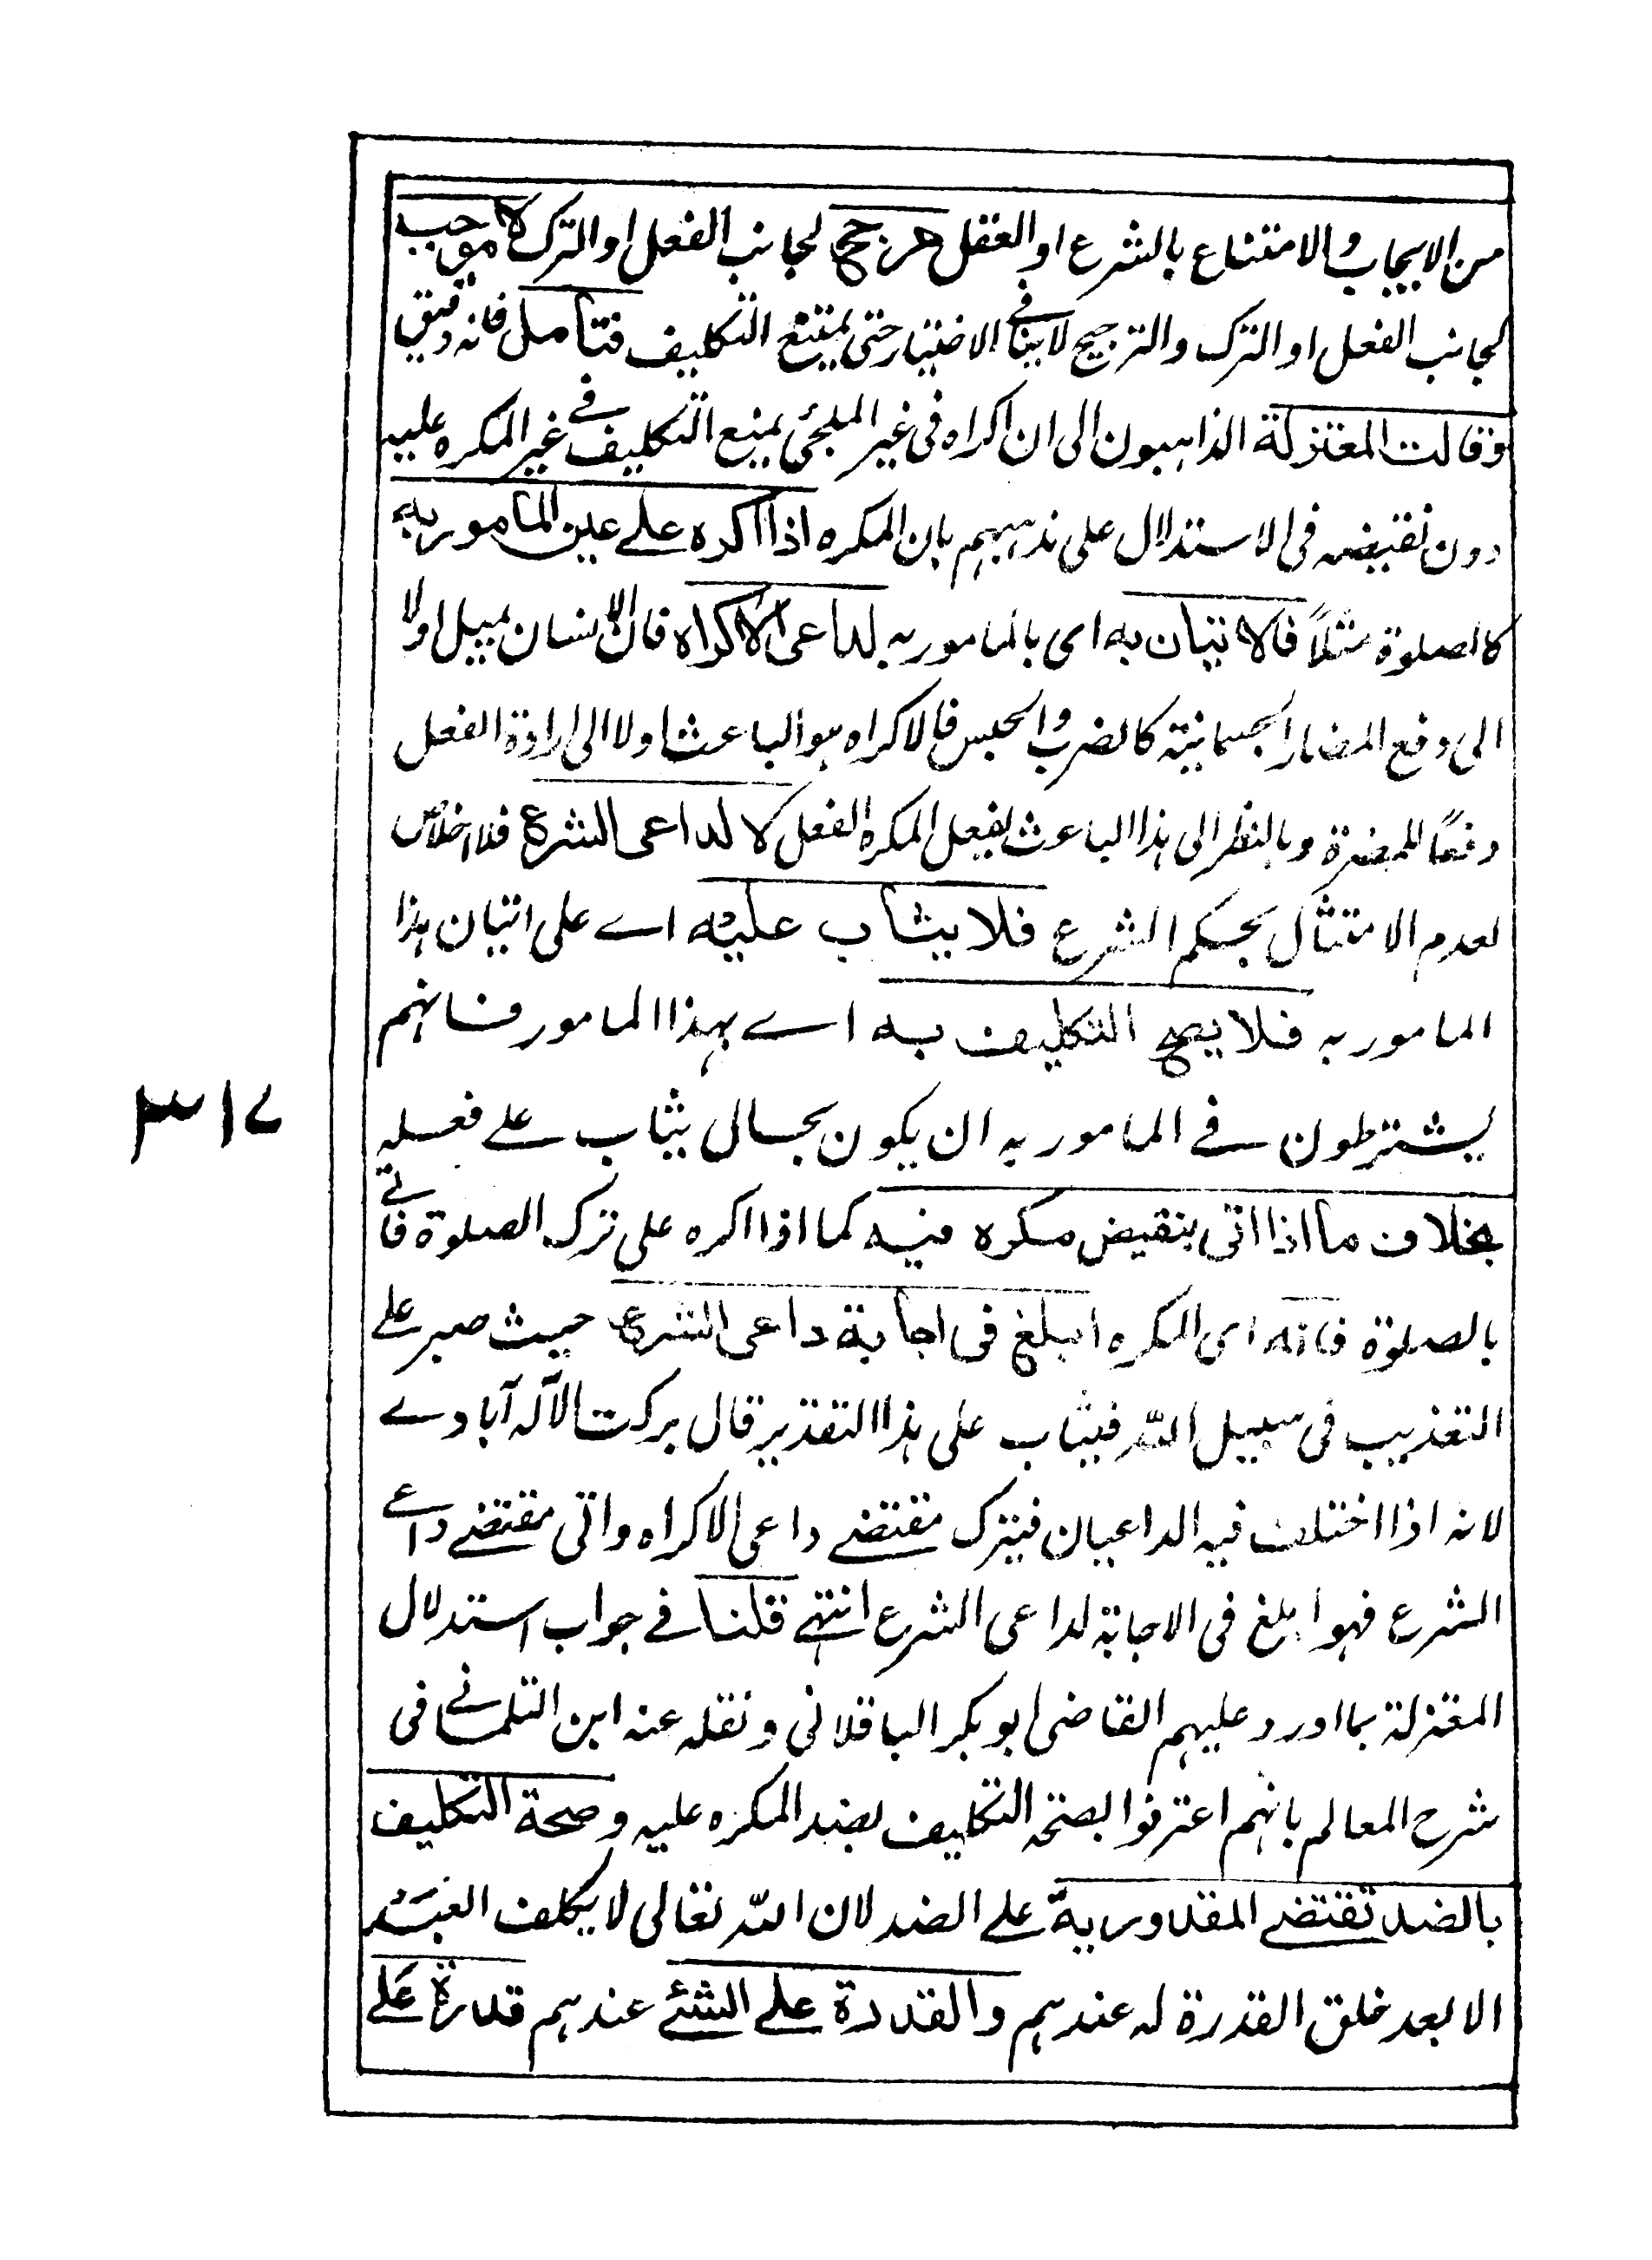 من الايجاب والامتناع بالشرع او العقل مرجح لجانب الفعل او الترك لا موجب
لجانب الفعل او الترك والترجيح لا ينافي الاختيار حتى يمتنع التكليف فتأمل فانه دقيق
وقالت المعتزلة الذاهبون الى ان اكراه فى غير الملجئ يمنع التكليف في غير المكره عليه
دون نقيضه فى الاستدلال على مذهبهم بان المكره اذا اكره على عين المامور به
كالصلوة مثلاً فالاتيان به اى بالمامور به لداعى الاكراه فان الانسان يميل اولا
الى دفع المضار الجسمانية كالضرب والحبس فالاكراه هو الباعث اولا الى ارادة الفعل
دفعًا للمضرة وبالنظر الى هذا الباعث يفعل المكره الفعل لا لداعى الشرع فلا اخلاص
لعدم الامتثال بحكم الشرع فلا يثاب عليه اے على اتيان هذا
المامور به فلا يصح التكليف به اے بهذا المامور فانهم
يشترطون في المامور به ان يكون بحال يثاب على فعله
بخلاف ما اذا اتى بنقيض مكره فيه كما اذا اكره على ترك الصلوة فاتى
بالصلوة فانه اى المكره ابلغ فى اجابة داعى الشرع حيث صبر على
التعذيب فى سبيل الله فيثاب على هذا التقدير قال بركت الآله آبادے
لانه اذا اختلف فيه الداعيان فيترك مقتضے داعى الاكراه واتى مقتضے داعے
الشرع فهو ابلغ فى الاجابة لداعى الشرع انتهے قلنا في جواب استدلال
المعتزلة بما اورد عليهم القاضى ابو بكر الباقلانى ونقله عنه ابن التلمسانے فى
شرح المعالم بانهم اعترفوا بصحة التكليف بضد المكره عليه وصحة التكليف
بالضد تقتضے المقدورية على الضد لان الله تعالى لا يكلف العبد
الا بعد خلق القدرة له عندهم والقدرة على الشئ عندهم قدرة على
٣١٧